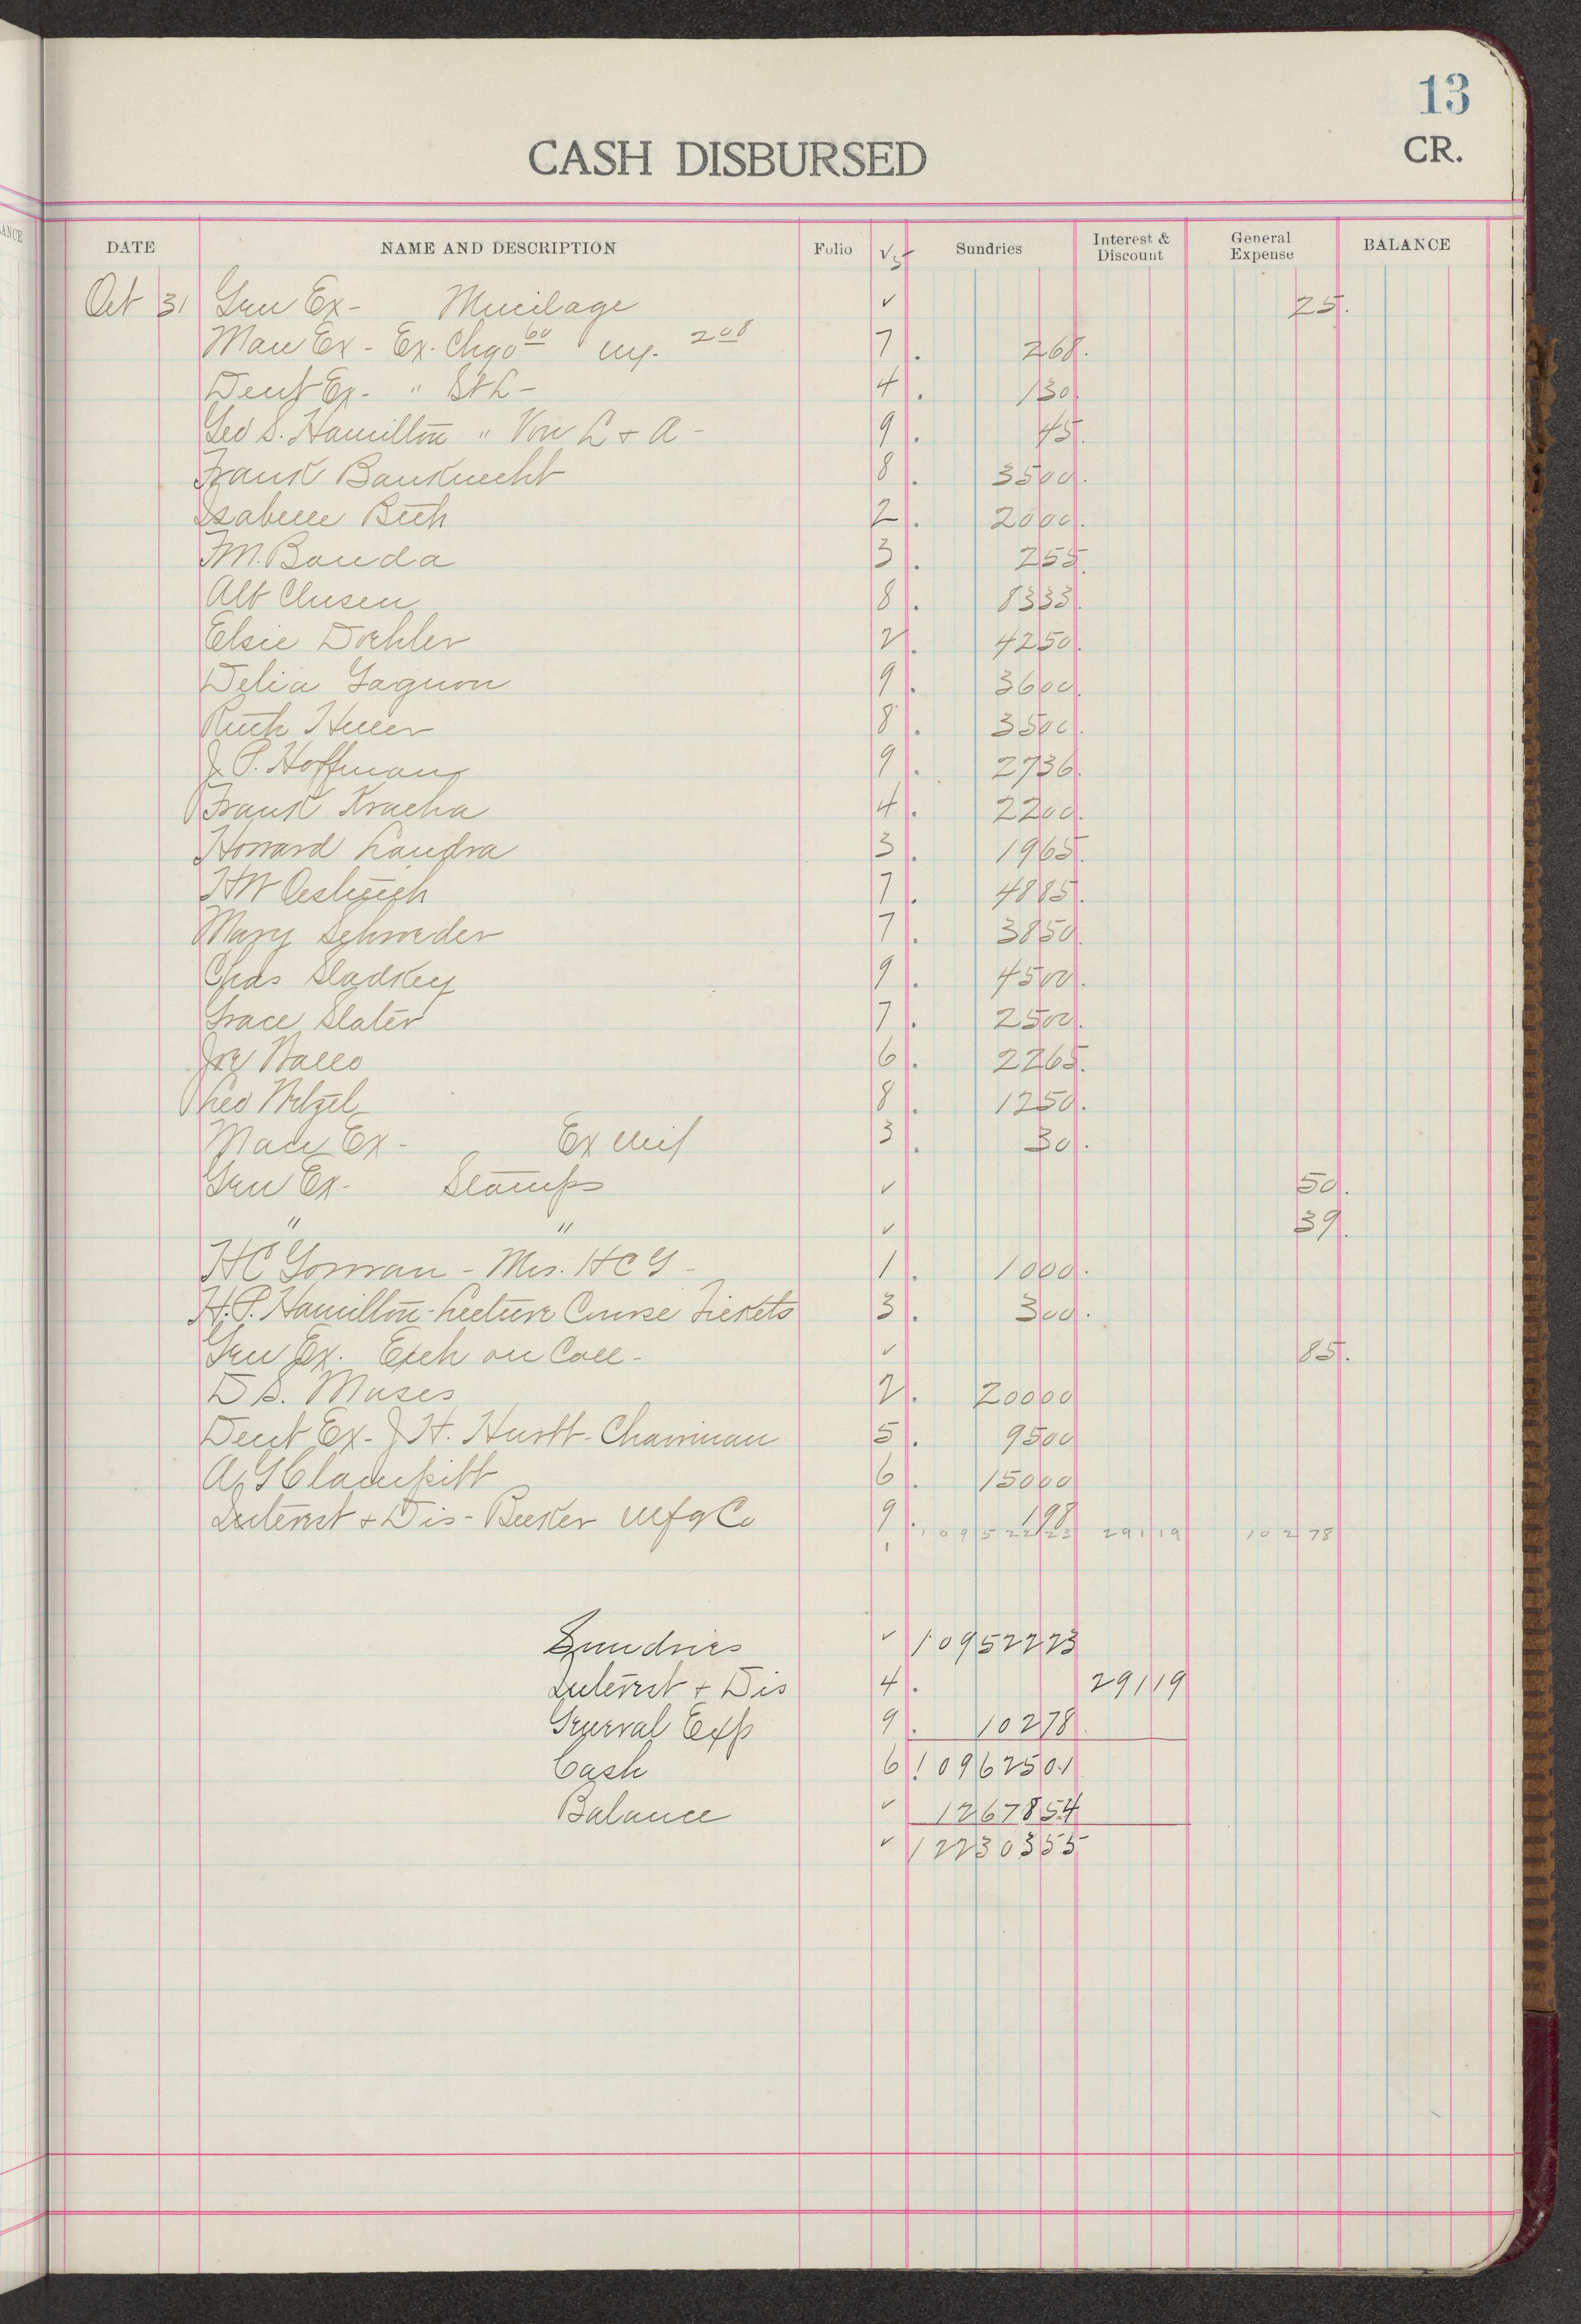 13
CASH DISBURSED CR.
DATE NAME AND DESCRIPTION Folio Vs Sundries Interest & Discount General Expense BALANCE
Oct 31 Gen Ex - Mucilage ✓ 25.
Man Ex - Ex. Chgo 60 NY. 2 08 7 . 268.
Dent Ex - " St L - 4 . 130.
Geo S. Hamilton " Von L + A - 9 . 45.
Frank Bauknecht 8 . 3500.
Isabelle Beth 2 . 2000.
F.M. Bouda 3 . 255.
Alb Clusen 8 . 8333.
Elsie Doehler 2 . 4250.
Delia Gagnon 9 . 3600.
Ruth Heller 8 . 3500.
J. P. Hoffman 9 . 2736.
Frank Kracha 4 . 2200.
Howard Landra 3 . 1965.
HW Oestreich 7 . 4885.
Mary Schroeder 7 . 3850.
Chas Sladkey 9 . 4500.
Grace Slater 7 . 2500.
Joe Wallo 6 . 2265.
Theo Wetzel 8 . 1250.
Man Ex - Ex Mil 3 . 30.
Gen Ex - Stamps ✓ 50.
" " ✓ 39.
HC Gorman - Mrs. HCG - 1 . 1000.
H. P. Hamilton - Lecture Course Tickets 3 . 300.
Gen Ex. Exch on Coll - ✓ 85.
D S. Moses 2 . 20000
Dent Ex - J H. Hurtt - Chairman 5 . 9500
A G Clampitt 6 . 15000
Interest + Dis - Becker Mfg Co 9 . 198
10952223 29119 10278
Sundries ✓ 10952223
Interest + Dis 4 . 29119
General Exp 9 . 10278
Cash 6 10962501
Balance ✓ 1267854
✓ 12230355